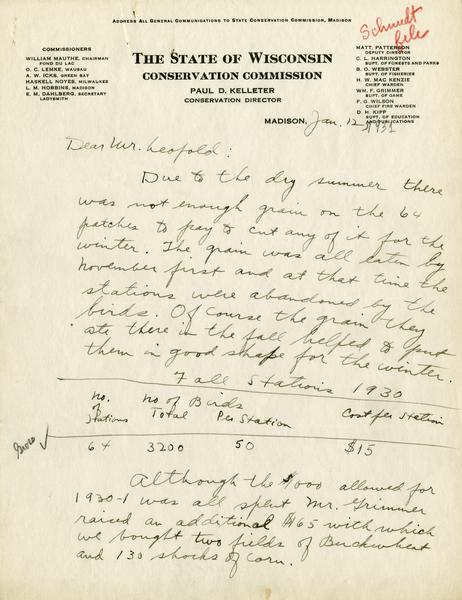 ADDRESS ALL GENERAL COMMUNICATIONS TO STATE CONSERVATION COMMISSION, MADISON
Schmidt
file
COMMISSIONERS
WILLIAM MAUTHE, CHAIRMAN
FOND DU LAC
O. C. LEMKE, WAUSAU
A. W. ICKS, GREEN BAY
HASKELL NOYES, MILWAUKEE
L. M. HOBBINS, MADISON
E. M. DAHLBERG, SECRETARY
LADYSMITH
THE STATE OF WISCONSIN
CONSERVATION COMMISSION
PAUL D. KELLETER
CONSERVATION DIRECTOR
MATT. PATTERSON
DEPUTY DIRECTOR
C. L. HARRINGTON
SUPT. OF FORESTS AND PARKS
B. O. WEBSTER
SUPT. OF FISHERIES
H. W. MAC KENZIE
CHIEF WARDEN
WM. F. GRIMMER
SUPT. OF GAME
F. G. WILSON
CHIEF FIRE WARDEN
D. H. KIPP
SUPT. OF EDUCATION
AND PUBLICATIONS
MADISON, Jan. 12, 1931
Dear Mr. Leopold:
Due to the dry summer there
was not enough grain on the 64
patches to pay to cut any of it for the
winter. The grain was all eaten by
November first and at that time the
stations were abandoned by the
birds. Of course the grain they
ate there in the fall helped to put
them in good shape for the winter.
Fall Stations 1930
No. of Stations No of Birds Total Per Station Cost per Station
64 3200 50 $15
Although the $1000 allowed for
1930-1 was all spent Mr. Grimmer
raised an additional $165 with which
we bought two fields of Buckwheat
and 130 shocks of corn.